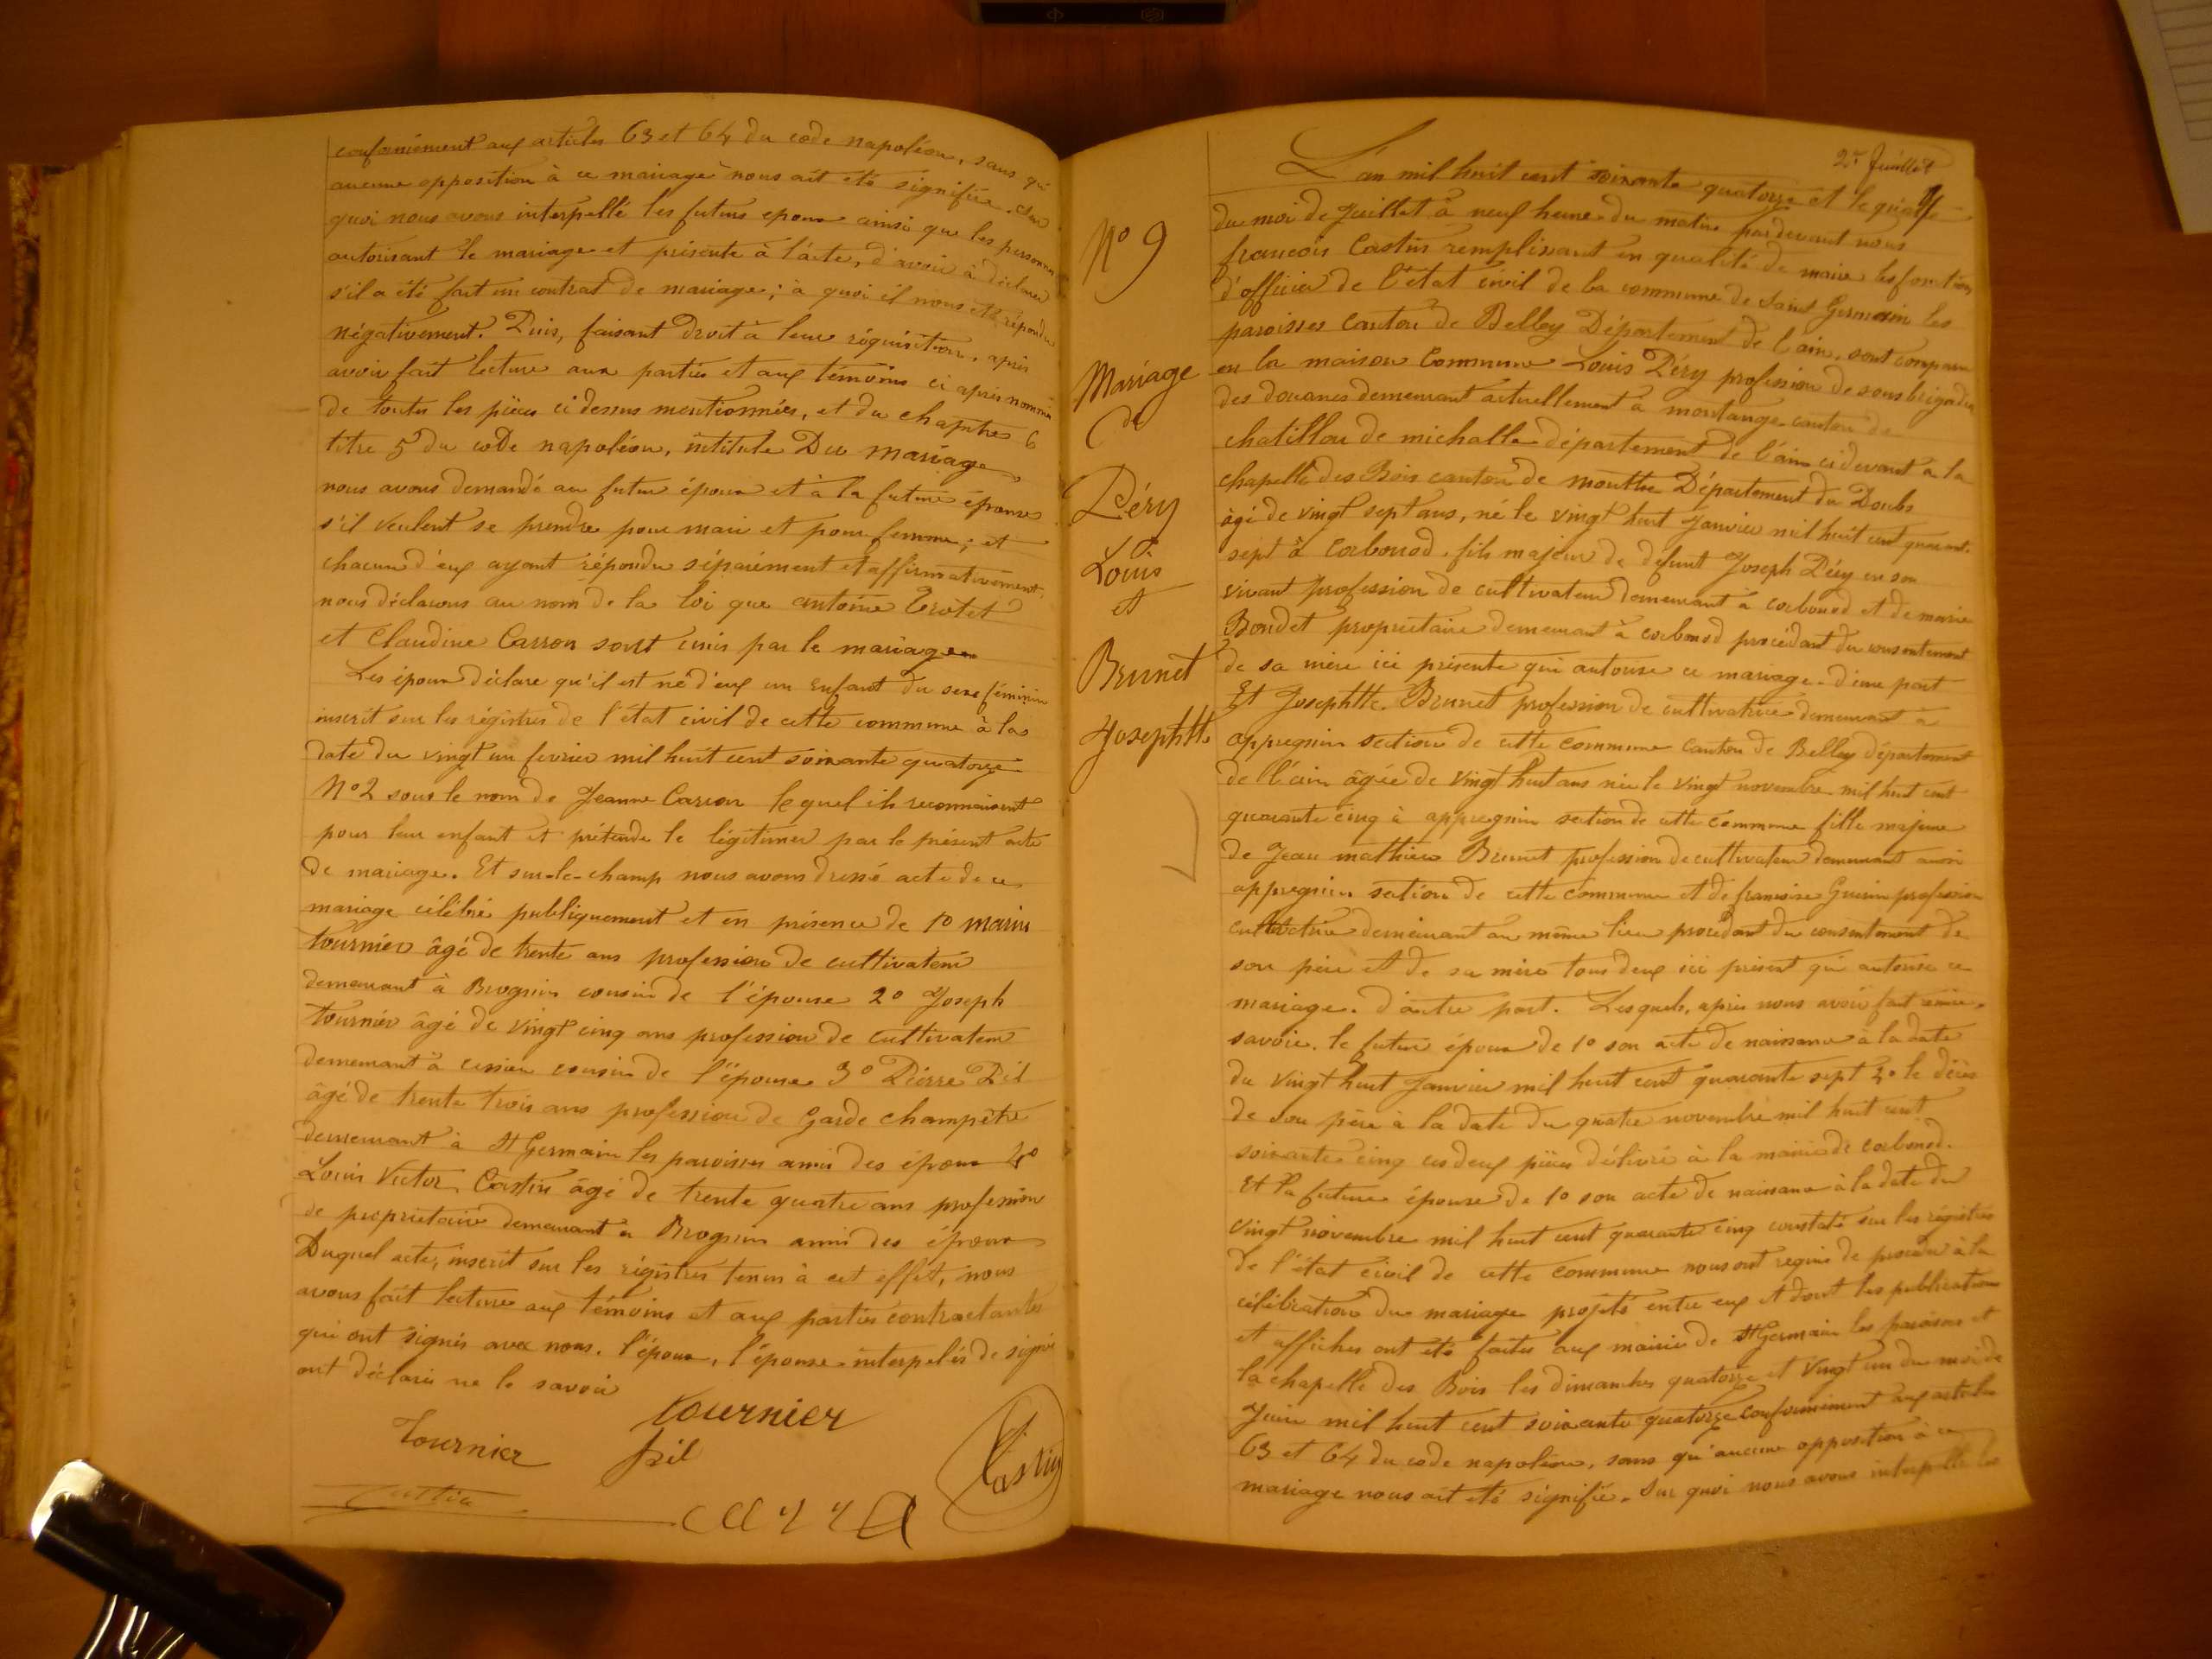 conformément aux articles 63 et 64 du code napoléon, sans qu
aucune opposition à ce mariage nous ait été signifiée. Sur
quoi nous avons interpellé les futurs epoux ainsi que les personnes
autorisant le mariage et présente à l'acte, d'avoir à déclarer
s'il a été fait un contrat de mariage; à quoi il nous été répondu
négativement. Puis, faisant droit à leur réquisition, après
avoir fait lecture aux parties et aux témoins ci après nommés
de toutes les pièces ci dessus mentionnées, et du chapitre 6
titre 5 du code napoléon, intitulé Du Mariage,
nous avons demandé au futur époux et à la future épouse
s'il veulent se prendre pour mari et pour femme; et
chacun d'eux ayant répondu séparément et affirmativement,
nous déclarons au nom de la loi que antoine Trotet
et Claudine Carron sont unis par le mariage
Les époux déclare qu'il est né d'eux un Enfant du sexe féminin
inscrit sur les régistres de l'état civil de cette commune à la
date du vingt un fevrier mil huit cent soixante quatorze
N° 2 sous le nom de Jeanne Carron lequel ils reconnaissent
pour leur enfant et prétende le légitimer par le présent acte
de mariage. Et sur-le-champ nous avons dressé acte de ce
mariage célébré publiquement et en présence de 1° marin
tournier âgé de trente ans profession de cultivateur
demeurant à Brognin cousin de l'épouse 2° Joseph
tournier âgé de vingt cinq ans profession de cultivateur
demeurant à cousin de l'épouse 3° Pierre Pil
âgé de trente trois ans profession de Garde champêtre
demeurant à St Germain les paroisses amis des époux 4°
Louis Victor Castin âgé de trente quatre ans profession
de proprietaire demeurant a Brognin ami des époux
Duquel acte, inscrit sur les régistres tenus à cet effet, nous
avons fait lecture aux témoins et aux parties contractantes
qui ont signés avec nous. l'époux, l'épouse interpelés de signer
ont déclaré ne le savoir
Tournier
tournier
pil
Castin
2 Juillet
L'an mil huit cent soixante quatorze et le quatre
du moi de Juillet à neuf heure du matin pardevant nous
françois Castin remplissant en qualité de maire les fonctions
d'officier de l'état civil de la commune de Saint Germain les
paroisses canton de Belley Département de l'ain, sont comparu
en la maison Commune Louis Péry profession de sous brigadier
des douanes demeurant actuellement à montange canton de
chatillon de michaille département de l'ain ci devant à la
chapelle des Bois canton de mouthe Département du Doubs
âgé de vingt sept ans, né le vingt huit Janvier mil huit cent quarante
sept à Corbonod, fils majeur de défunt Joseph Péry en son
vivant profession de cultivateur demeurant à corbonod et de marie
Bondet proprietaire demeurant à corbonod procédant du consentement
de sa mère ici présente qui autorise ce mariage. d'une part
Et Josephtte Brunet profession de cultivatrice demeurant à
appregnin section de cette commune canton de Belley département
de l'ain âgée de vingt huit ans née le vingt novembre mil huit cent
quarante cinq à appregnin section de cette commune fille majeure
de Jean mathieu Brunet profession de cultivateur demeurant aussi
appregnin section de cette commune et de françoise Guerin profession
cultivatrice demeurant au même lieu procédant du consentement de
son père et de sa mère tous deux ici présent qui autorise ce
mariage. d'autre part. Lesquels, après nous avoir fait remise,
savoir. le futur époux de 1° son acte de naissance à la date
du vingt huit Janvier mil huit cent quarante sept 2° le décès
de son père à la date du quatre novembre mil huit cent
soixante cinq ces deux pièces délivré à la mairie de corbonod.
Et la future épouse de 1° son acte de naissance à la date du
vingt novembre mil huit cent quarante cinq constaté sur les régistres
de l'état civil de cette commune nous ont requis de procéder à la
célébration du mariage projeté entre eux et dont les publications
et affiches ont été faites aux mairie de St Germain les paroisses et
la chapelle des Bois les dimanches quatorze et vingt un du moi de
Juin mil huit cent soixante quatorze conformément aux articles
63 et 64 du code napoléon, sans qu'aucune opposition à ce
mariage nous ait été signifiée. Sur quoi nous avons interpellé les
N° 9
Mariage
de
Péry
Louis
et
Brunet
Josephtte